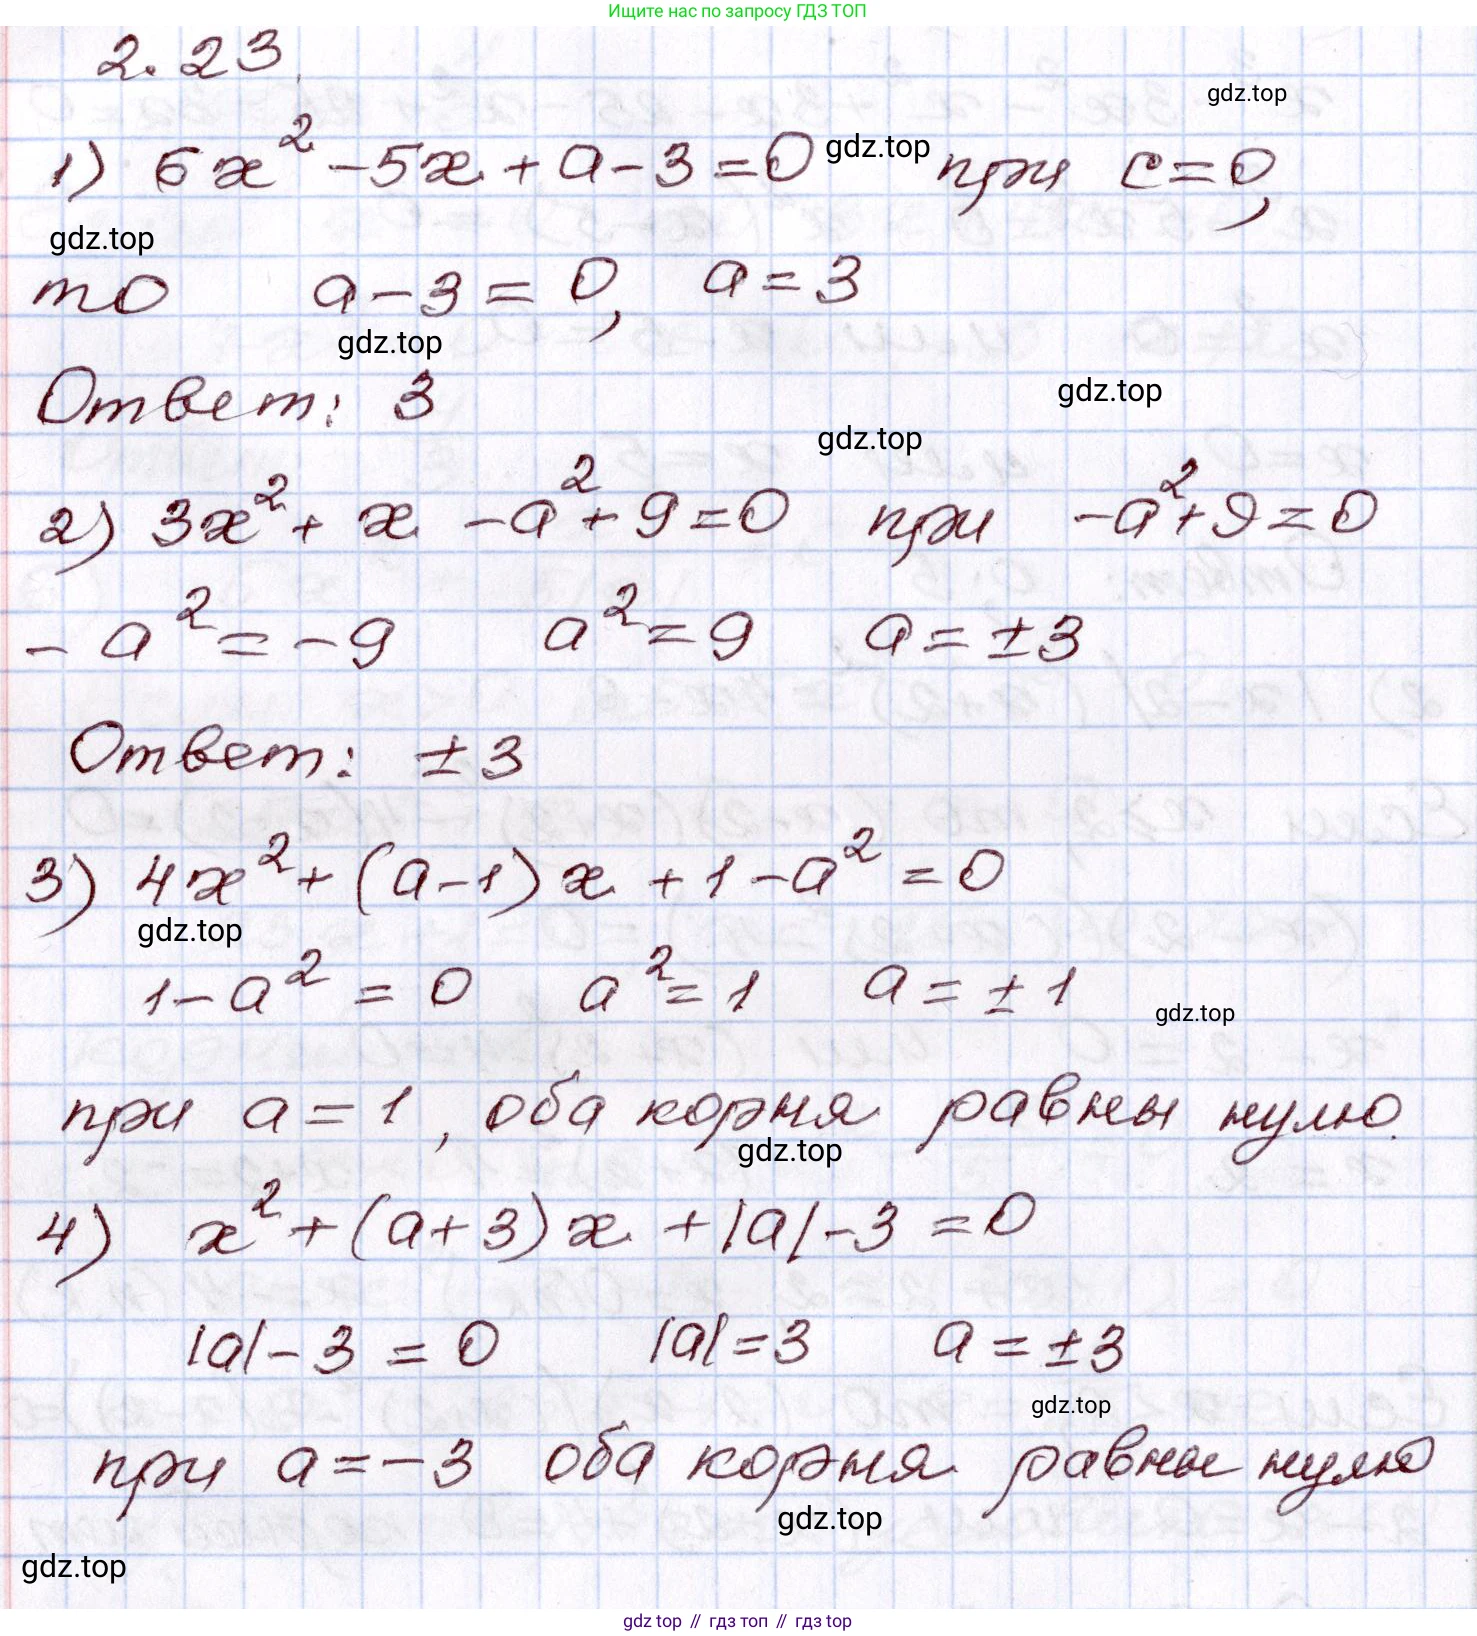 Ищите нас по запросу ГДЗ ТОП
2.23
gdz.top
1) 6x² - 5x + a - 3 = 0 gdz.top при c = 0,
gdz.top
то a - 3 = 0, a = 3
gdz.top
Ответ: 3
gdz.top
gdz.top
2) 3x² + x - a² + 9 = 0 при -a² + 9 = 0
-a² = -9 a² = 9 a = ±3
Ответ: ±3
3) 4x² + (a - 1)x + 1 - a² = 0
gdz.top
1 - a² = 0 a² = 1 a = ±1
gdz.top
при a = 1, оба корня равны нулю.
gdz.top
4) x² + (a + 3)x + |a| - 3 = 0
|a| - 3 = 0 |a| = 3 a = ±3
gdz.top
при a = -3 оба корня равны нулю
gdz.top
gdz.top
gdz top // гдз топ // гдз top